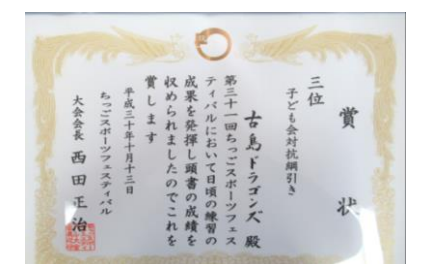 賞状
三位
子ども会対抗綱引き
古島ドラゴンズ 殿
第三十一回ちっごスポーツフェス
ティバルにおいて日頃の練習の
成果を発揮し頭書の成績を
収められましたのでこれを
賞します
平成三十年十月十三日
ちっごスポーツフェスティバル
大会会長 西田正治